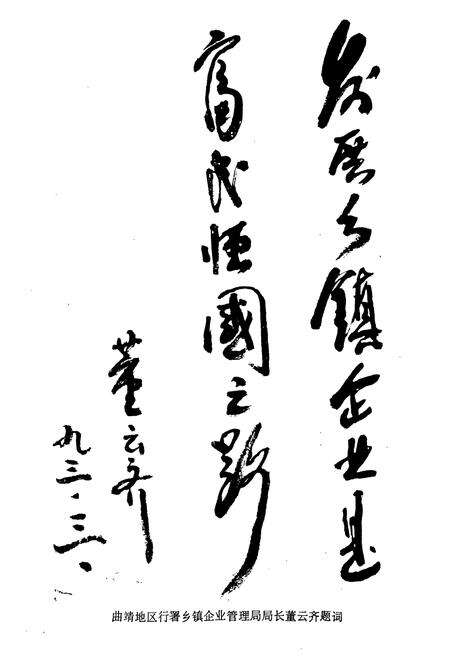 发展乡镇企业是
富民强国之路
董云齐
九三.三.
曲靖地区行署乡镇企业管理局局长董云齐题词